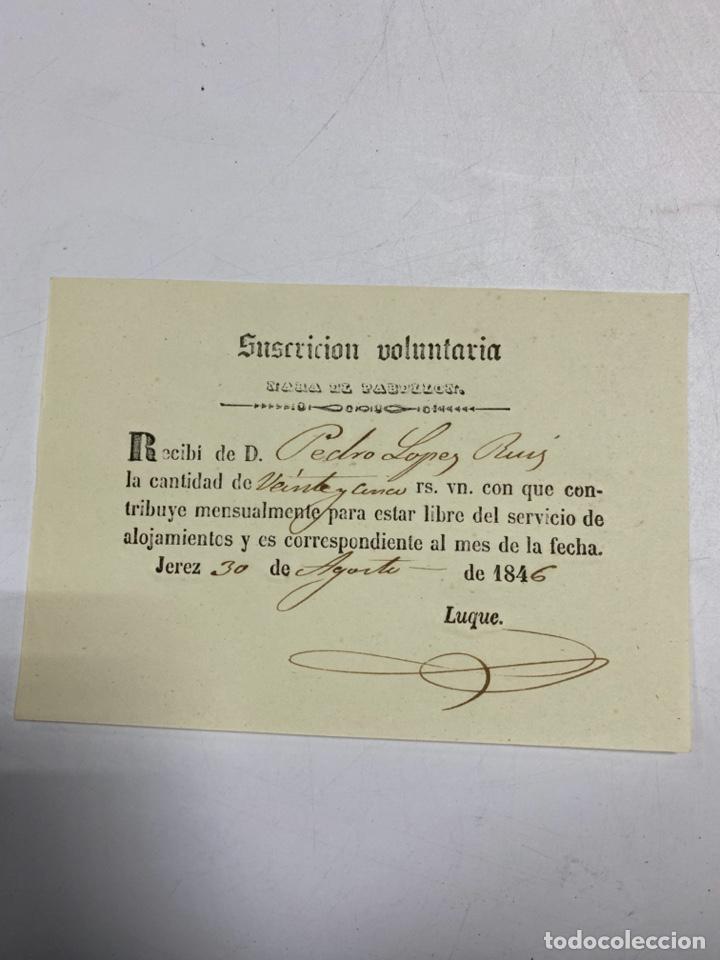 Suscricion voluntaria
PARA EL PABELLON.
Recibí de D. Pedro Lopez Ruiz
la cantidad de Veinte y cinco rs. vn. con que con-
tribuye mensualmente para estar libre del servicio de
alojamientos y es correspondiente al mes de la fecha.
Jerez 30 de Agosto de 1846
Luque.
todocoleccion